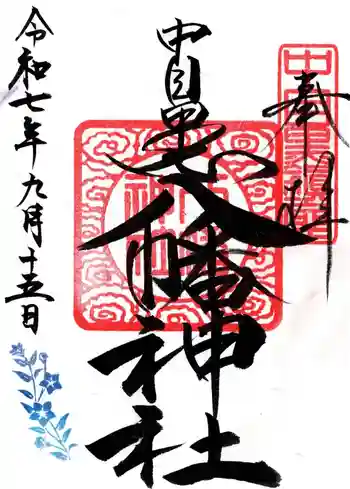 奉拝
中目黒八幡神社
令和七年九月十五日